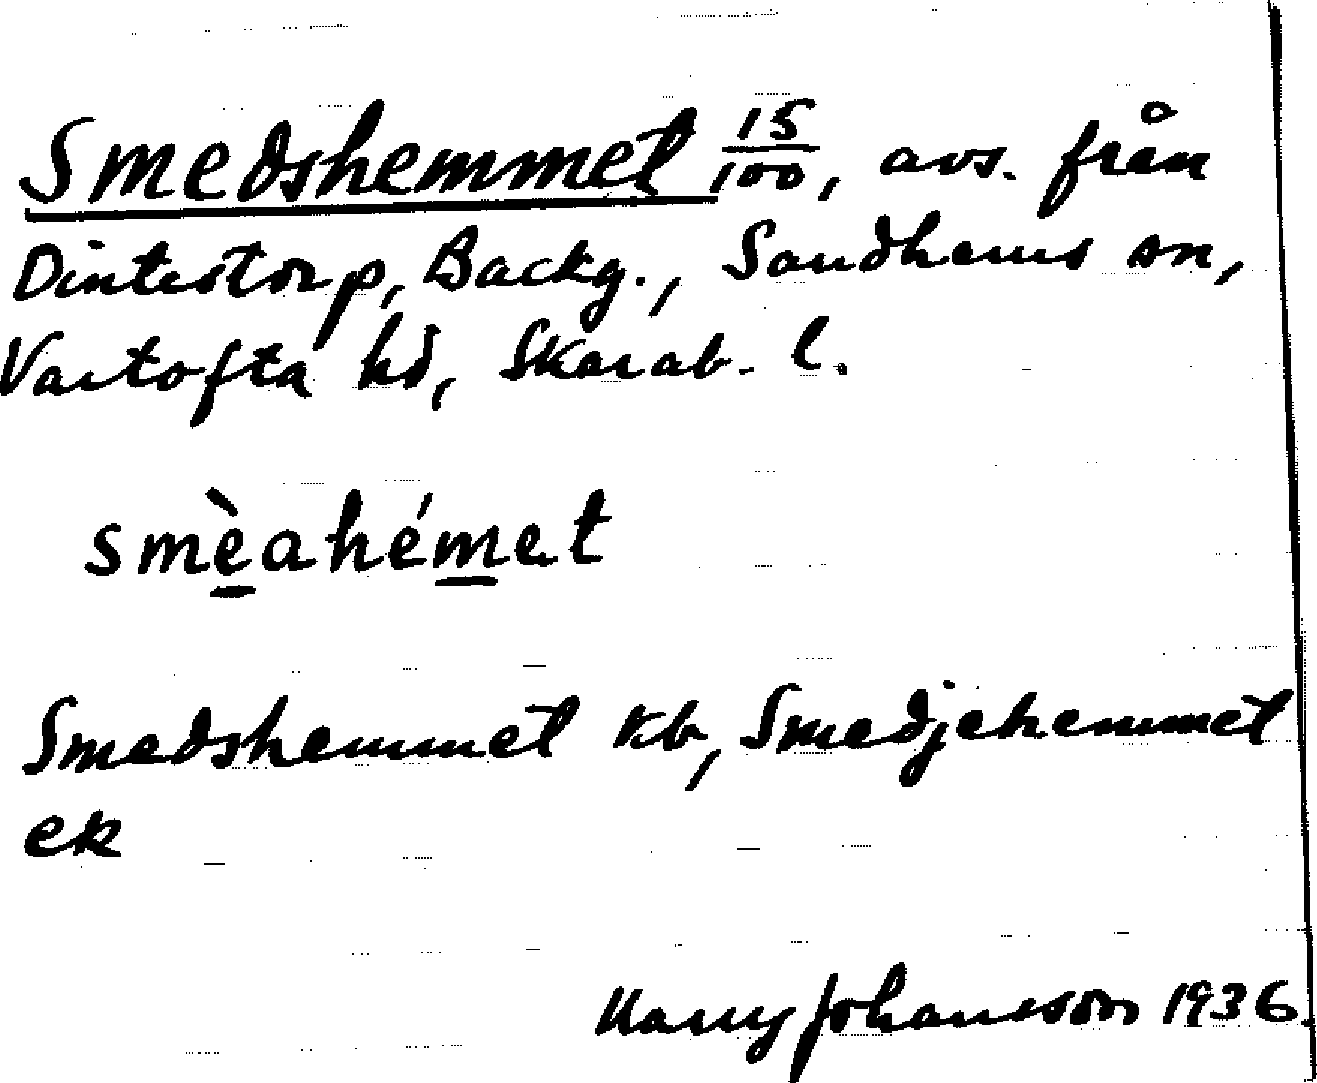 Smedshemmet 15/100, avs. från
Dintestorp, Backg., Sandhems sn,
Vartofta hd, Skarab. l.
smèahémet
Smedshemmet kb, Smedjehemmet
ek
Harry Johansson 1936.